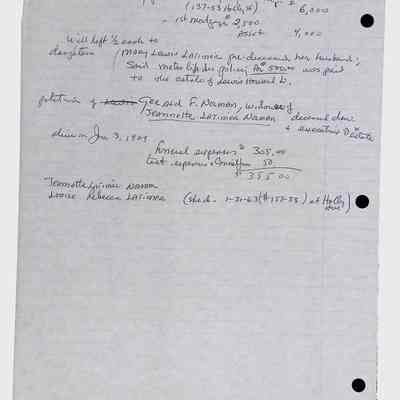 6,000
(137-53 Holly Ave)
- 1st mortgage $2,500
Asset 4,000
Will left 1/2 each to
daughters (Mary Lewis Latimer pre-deceased her husband,
Said metro life ins policy for 500.00 was paid
to the estate of Lewis Howard L.
petition of Gerald F. Norman, widower of
Jeannette Latimer Norman deceased dau
+ executrix D. estate
died in Jan 3, 1929
funeral expenses $ 305.00
50.
$ 355.00
Jeannette Latimer Norman
Louise Rebecca Latimer (she d. 1-31-63 (137-53) at Holly Ave)